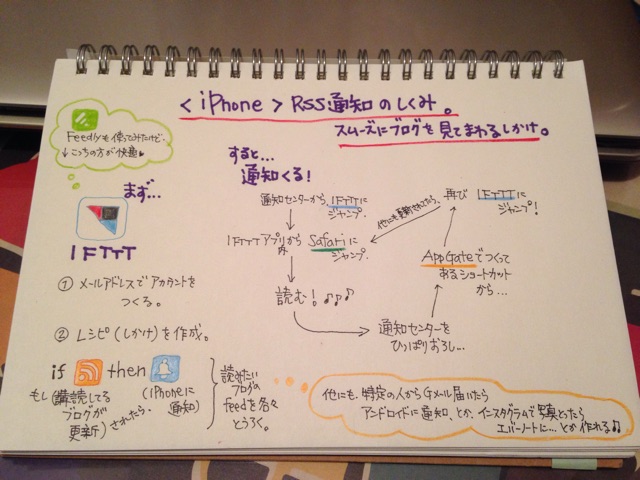 <iPhone> RSS通知のしくみ。
スムーズにブログを見てまわるしかけ。
Feedlyも使ってみたけど、
↓こっちの方が快適♥
まず…
IFTTT
① メールアドレスでアカウントを
つくる。
② レシピ(しかけ)を作成。
if then
もし(購読してる
ブログが
更新)されたら、
(iPhoneに
通知)
読みたい
ブログの
feedを各々
とうろく。
すると…
通知くる!
通知センターから、IFTTTに
ジャンプ。
IFTTTアプリから
Safariに
ジャンプ。
読む!♪♪♪
通知センターを
ひっぱりおろし…
AppGateでつくって
あるショートカット
から…
再び IFTTTに
ジャンプ!
他にも更新されてたら、
他にも、特定の人からGメール届いたら
アンドロイドに通知、とか、インスタグラムで写真とったら
エバーノートに…とか作れる♫